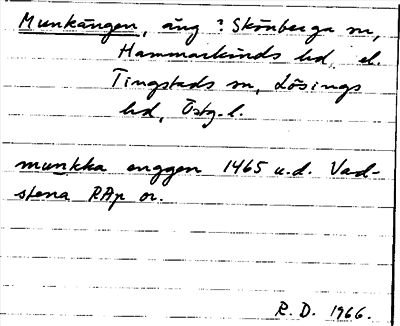 Munkängen, äng ? Skönberga sn,
Hammarkinds hd, el.
Tingstads sn, Lösings
hd, Östg.l.
munkka enggen 1465 u.d. Vad-
stena RAp or.
R.D. 1966.